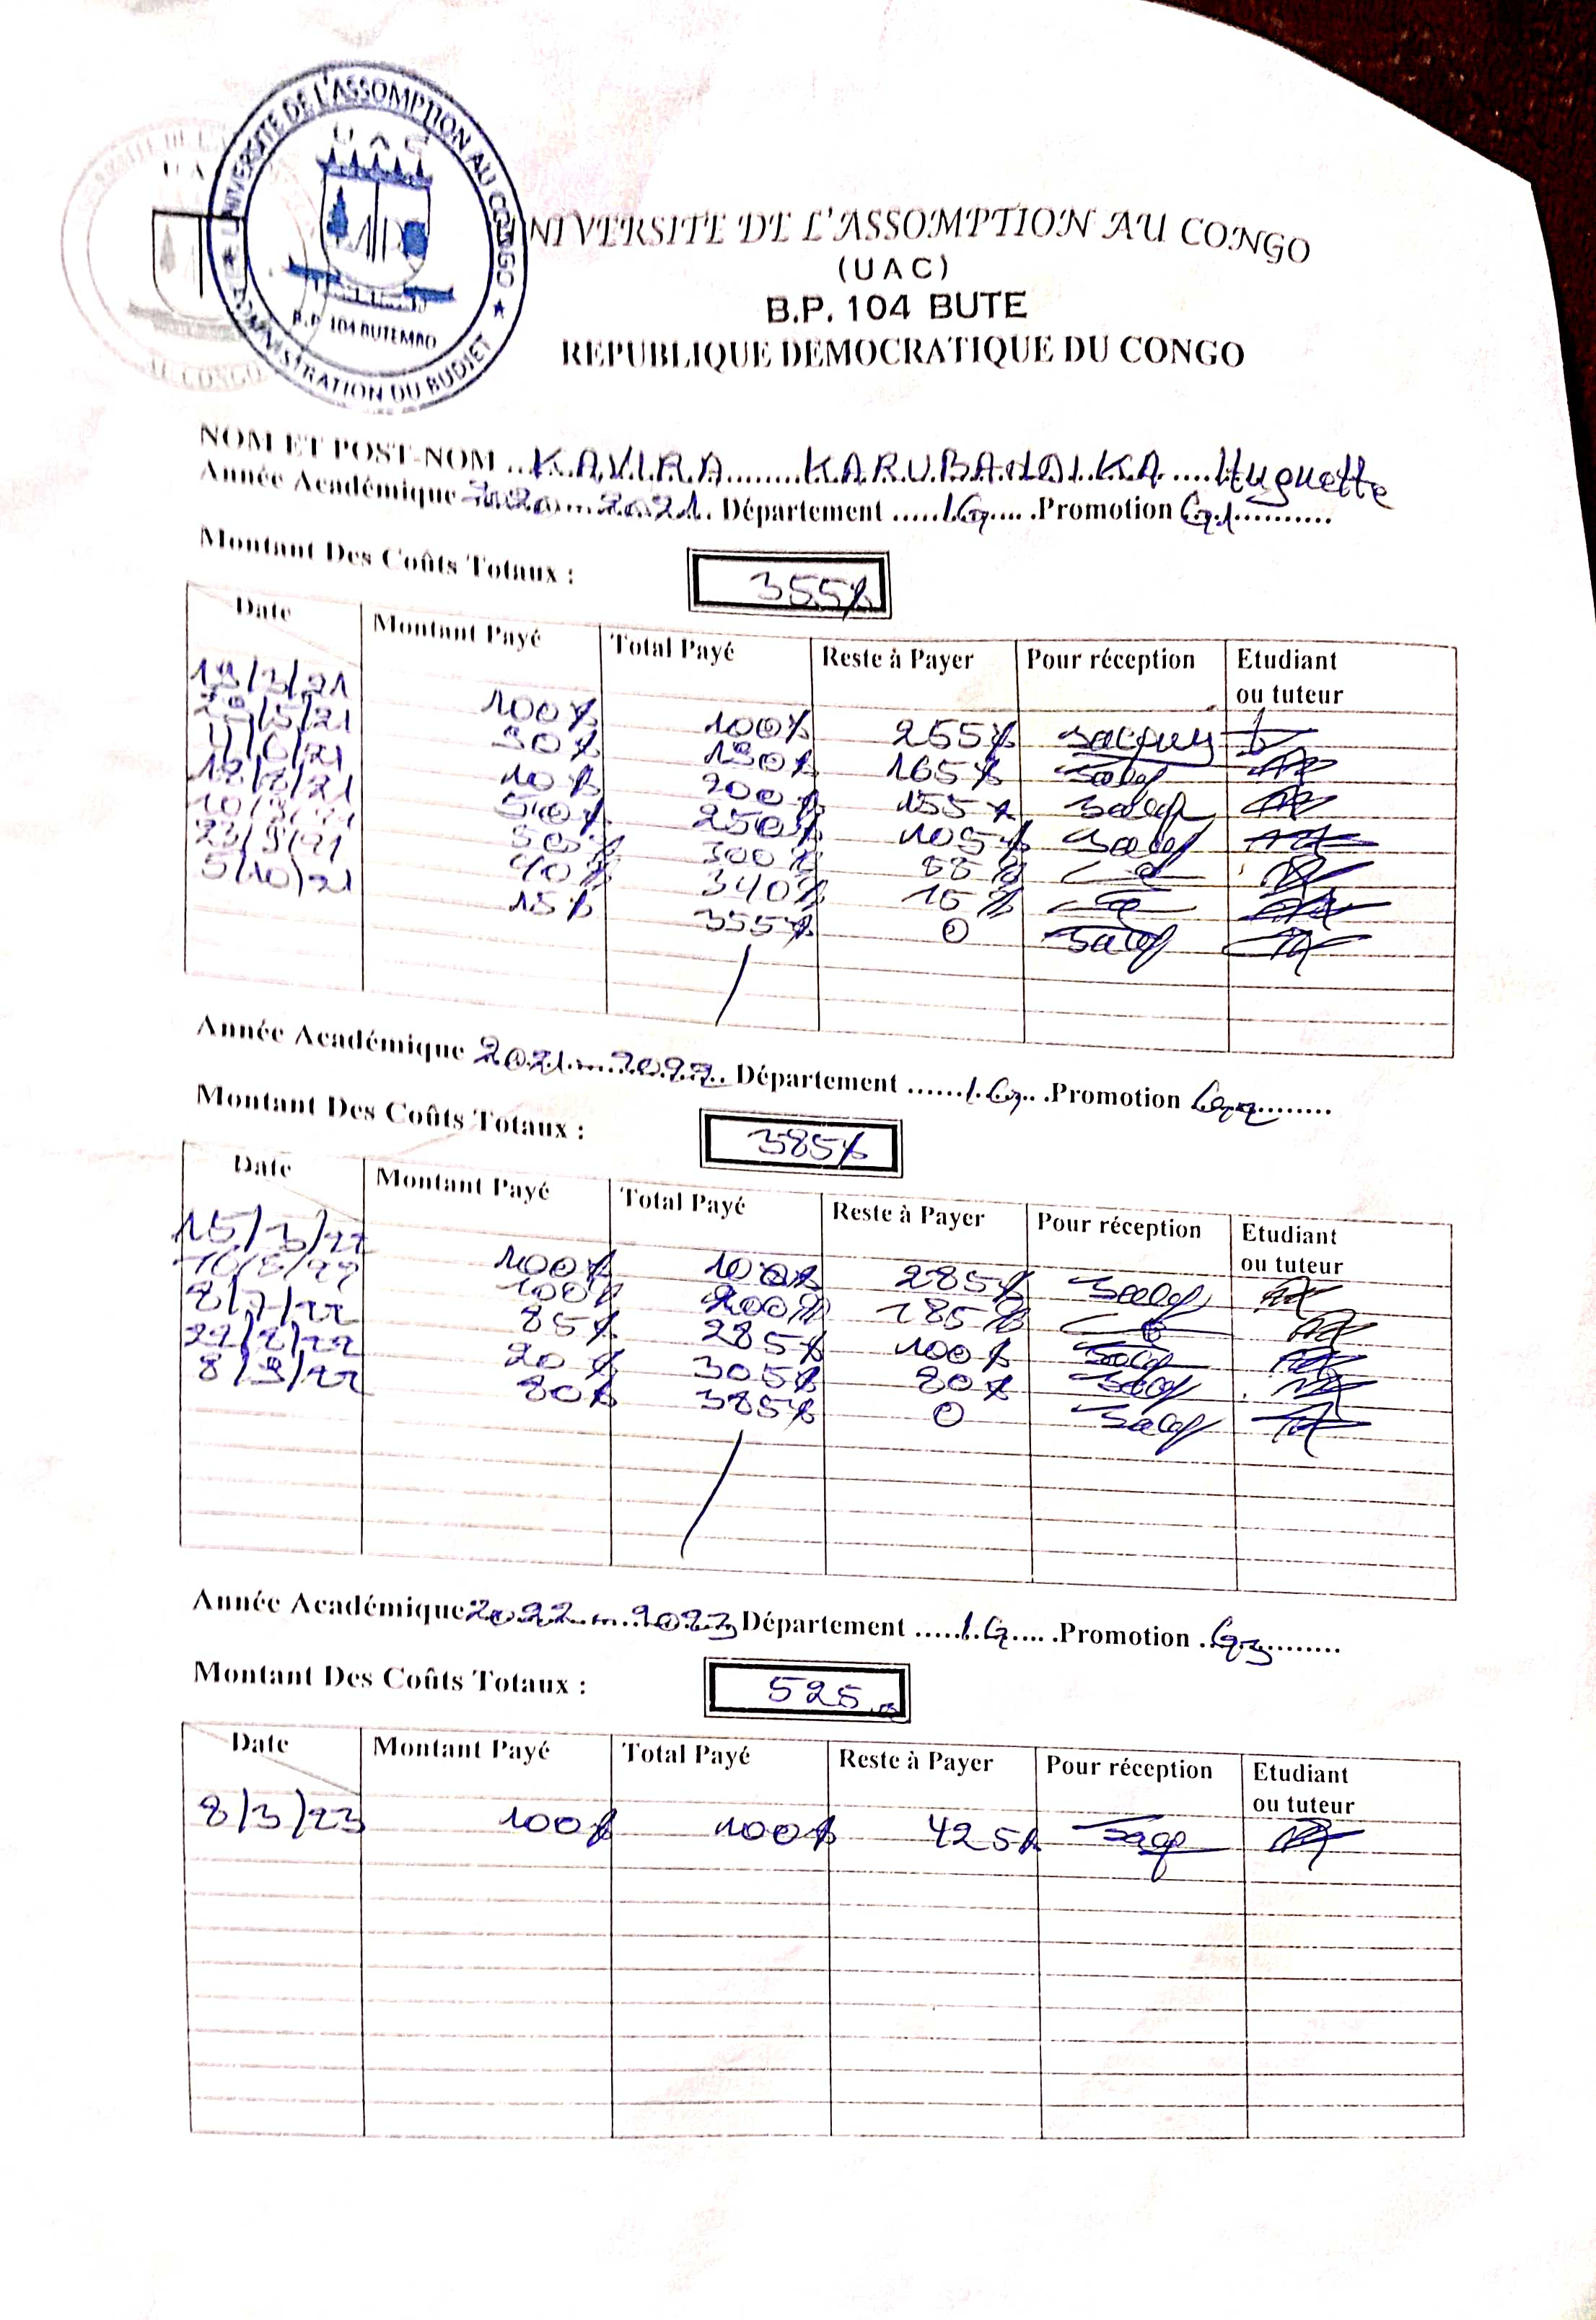 UNIVERSITE DE L'ASSOMPTION AU CONGO
U A C
B.P. 104 BUTEMBO
ADMINISTRATION DU BUDJET
UNIVERSITE DE L'ASSOMPTION AU CONGO
(U A C)
B.P. 104 BUTE
REPUBLIQUE DEMOCRATIQUE DU CONGO
NOM ET POST-NOM ... KAVIRA ... Huguette
Année Académique 2020 - 2021. Département ..... I.G .... .Promotion G1 ..........
Montant Des Coûts Totaux : 355$
Date Montant Payé Total Payé Reste à Payer Pour réception Etudiant ou tuteur
19/3/21 100$ 100$ 255$
/5/21 90$ 190$ 165$
11/6/21 10$ 200$ 155$
50$ 250$ 105$
50$ 300$ 55$
23/9/21 40$ 340$ 15$
5/10/21 15$ 355$ 0
Année Académique 2021 - 2022. Département ...... I.G .. .Promotion G2 .........
Montant Des Coûts Totaux : 385$
Date Montant Payé Total Payé Reste à Payer Pour réception Etudiant ou tuteur
15/3/22 100$ 100$ 285$
100$ 200$ 185$
8/7/22 85$ 285$ 100$
22/8/22 20$ 305$ 80$
8/9/22 80$ 385$ 0
Année Académique 2022 - 2023 Département ..... I.G .... .Promotion .G3 ..........
Montant Des Coûts Totaux : 525
Date Montant Payé Total Payé Reste à Payer Pour réception Etudiant ou tuteur
8/3/23 100$ 100$ 425$